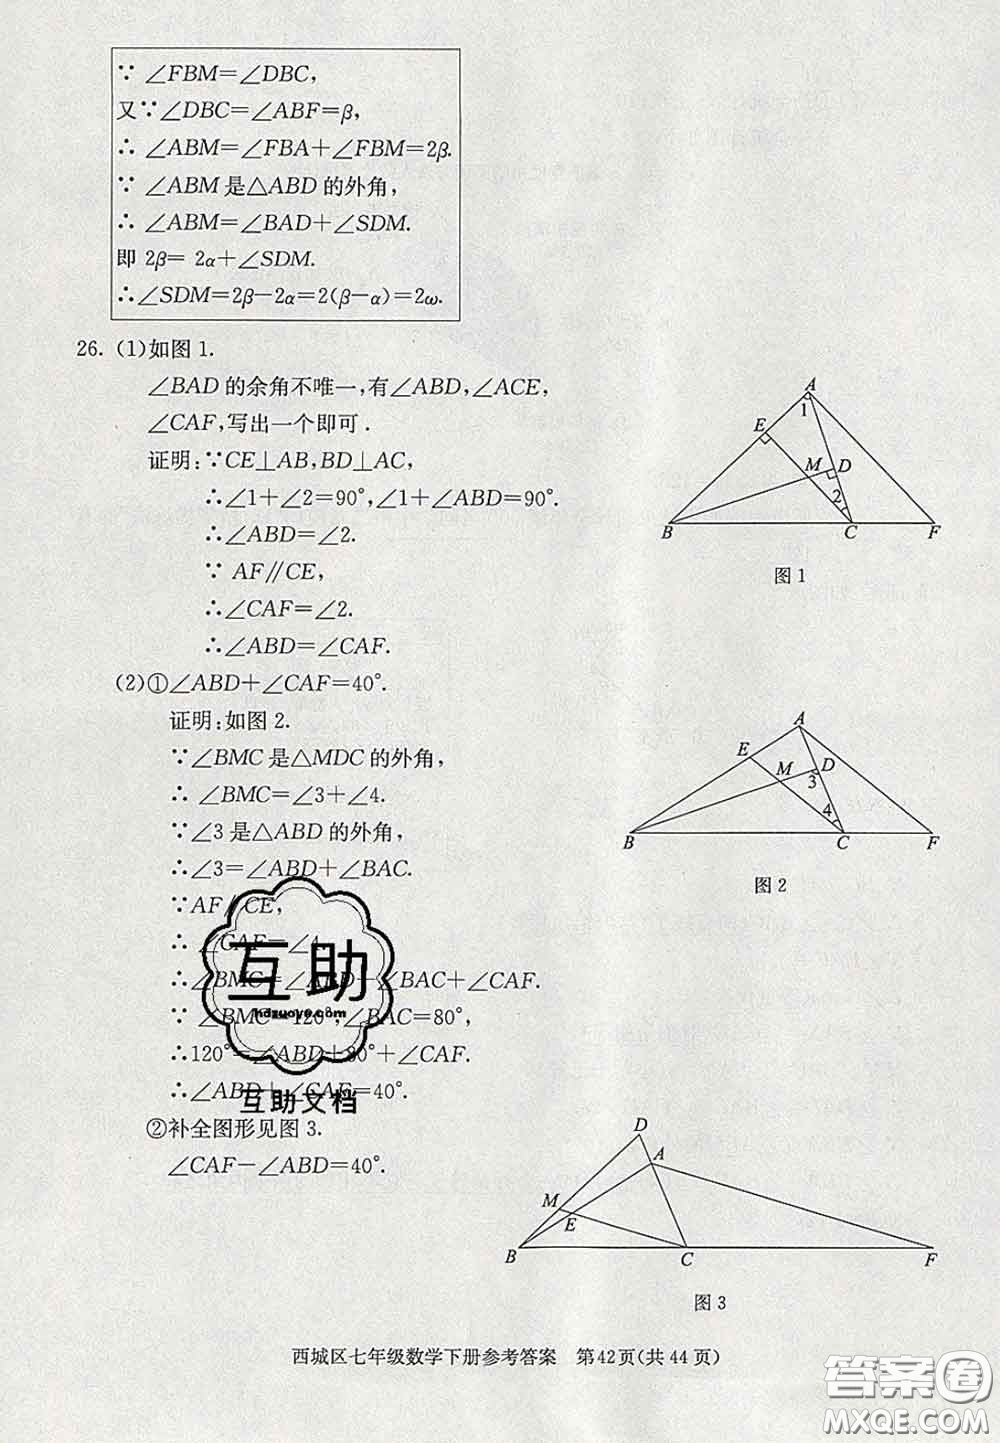 ∵ ∠FBM=∠DBC,
又∵∠DBC=∠ABF=β,
∴ ∠ABM=∠FBA+∠FBM=2β.
∵ ∠ABM 是△ABD 的外角,
∴ ∠ABM=∠BAD+∠SDM.
即 2β= 2α+∠SDM.
∴∠SDM=2β-2α=2(β-α)=2ω.
26. (1)如图 1.
∠BAD 的余角不唯一,有∠ABD,∠ACE,
∠CAF,写出一个即可.
证明:∵CE⊥AB,BD⊥AC,
∴∠1+∠2=90°,∠1+∠ABD=90°.
∴∠ABD=∠2.
∵ AF∥CE,
∴∠CAF=∠2.
∴∠ABD=∠CAF.
A
1
E
M
D
2
B
C
F
图 1
(2)①∠ABD+∠CAF=40°.
证明:如图 2.
∵∠BMC 是△MDC 的外角,
∴ ∠BMC=∠3+∠4.
∵∠3 是△ABD 的外角,
∴∠3=∠ABD+∠BAC.
∵AF∥CE,
∴ ∠CAF=∠4.
∴∠BMC=∠ABD+∠BAC+∠CAF.
∵ ∠BMC=120°,∠BAC=80°,
∴120°=∠ABD+80°+∠CAF.
∴∠ABD+∠CAF=40°.
A
E
M
D
3
4
B
C
F
图 2
②补全图形见图 3.
∠CAF-∠ABD=40°.
D
A
M
E
B
C
F
图 3
互助
hdzuoye.com
互助文档
西城区七年级数学下册参考答案 第42页(共 44 页)
答案圈
MXQE.COM